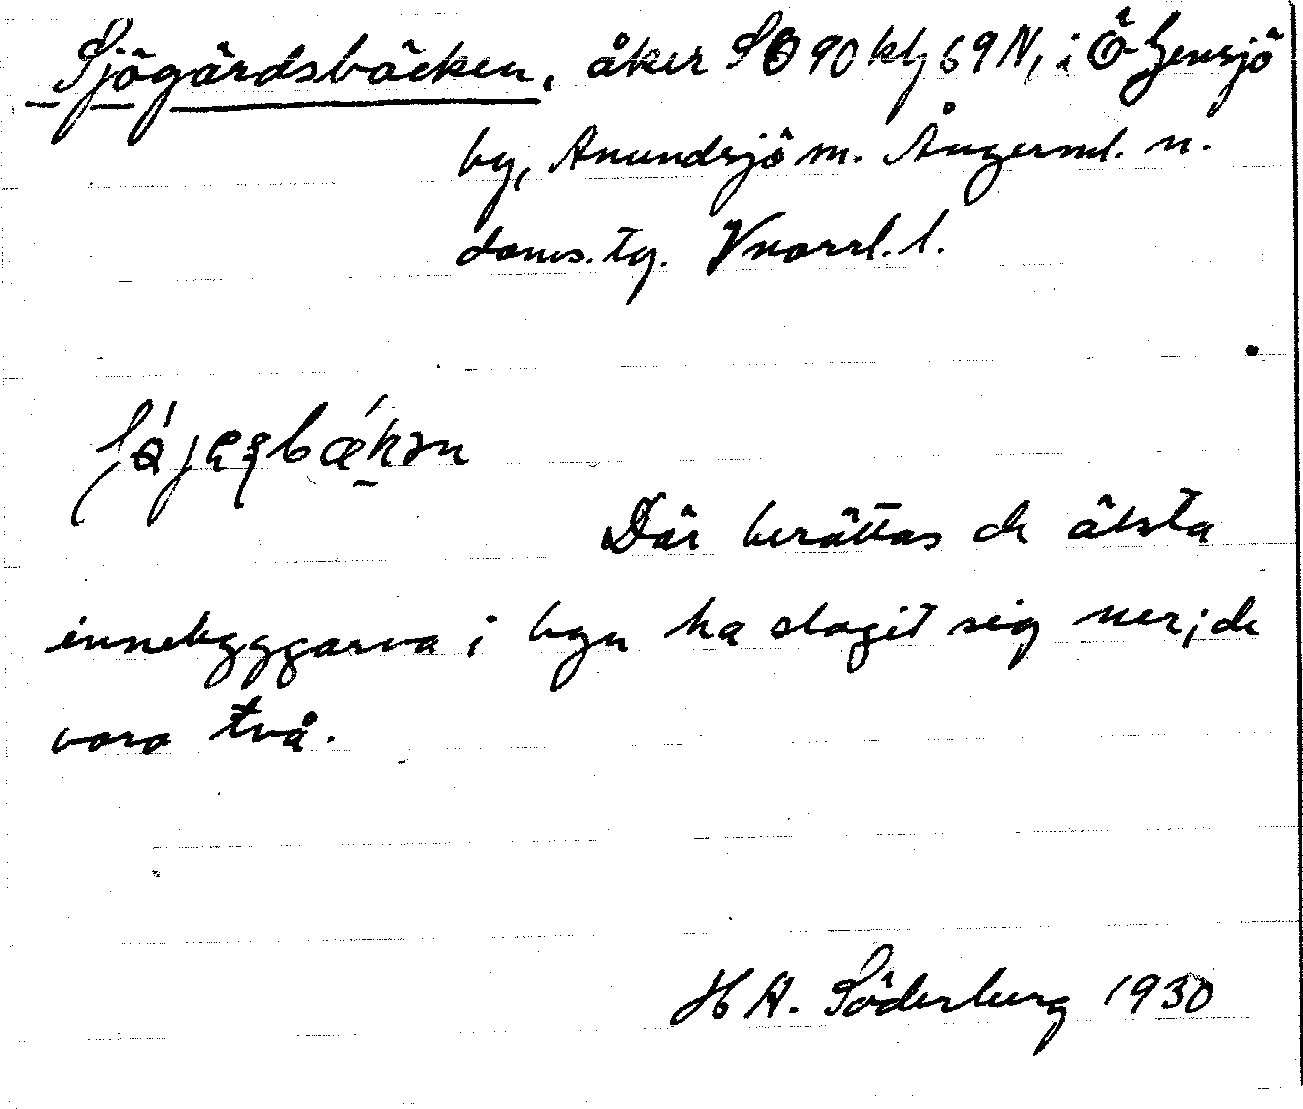 Sjögårdsbäcken, åker SO 90 kf 69 N, i Ö Gensjö
by, Anundsjö m. Ångerml. n.
doms. tg. Vnorrl. l.
Där berättas de äldsta
innebyggarna i byn ha slagit sig ner; de
voro två.
H A. Söderberg 1930